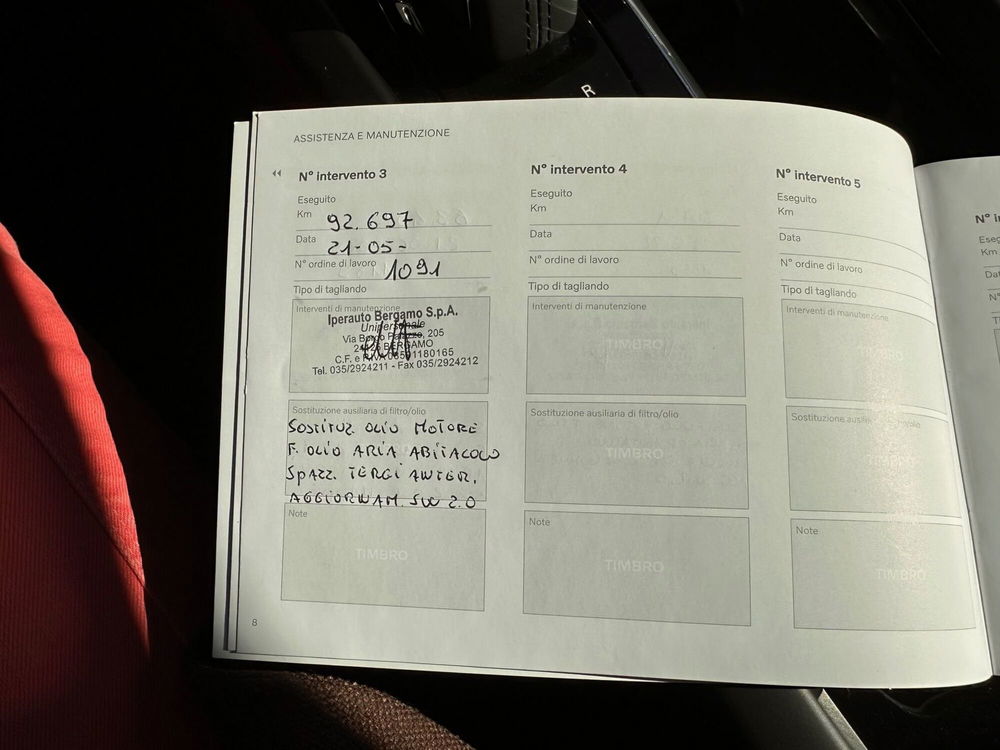 R
ASSISTENZA E MANUTENZIONE
N° intervento 3
Eseguito
Km 92.697
Data 21-05-
N° ordine di lavoro 1091
Tipo di tagliando
Interventi di manutenzione
Iperauto Bergamo S.p.A.
Unipersonale
Via Borgo Palazzo, 205
BERGAMO
C.F. e
Tel. 035/2924211 - Fax 035/2924212
Sostituzione ausiliaria di filtro/olio
SOSTITUZ. OLIO MOTORE
F. OLIO ARIA ABITACOLO
SPAZZ. TERGI ANTER.
AGGIORNAM. SW 2.0
Note
TIMBRO
8
N° intervento 4
Eseguito
Km
Data
N° ordine di lavoro
Tipo di tagliando
Interventi di manutenzione
TIMBRO
Sostituzione ausiliaria di filtro/olio
TIMBRO
Note
TIMBRO
N° intervento 5
Eseguito
Km
Data
N° ordine di lavoro
Tipo di tagliando
Interventi di manutenzione
TIMBRO
Sostituzione ausiliaria
TIMBRO
Note
TIMBRO
N°
Km